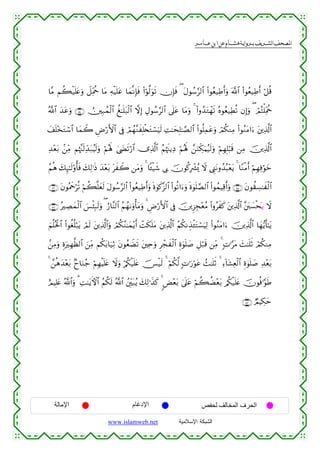 المصحف الشريف برواية هشام عن ابن عامر
قُلْ أَطِيعُوا۟ ٱللَّهَ وَأَطِيعُوا۟ ٱلرَّسُولَ ۖ فَإِن تَوَلَّوْا۟ فَإِنَّمَا عَلَيْهِ مَا حُمِّلَ وَعَلَيْكُم مَّا
حُمِّلْتُمْ ۖ وَإِن تُطِيعُوهُ تَهْتَدُوا۟ ۚ وَمَا عَلَى ٱلرَّسُولِ إِلَّا ٱلْبَلَٰغُ ٱلْمُبِينُ وَعَدَ ٱللَّهُ
ٱلَّذِينَ ءَامَنُوا۟ مِنكُمْ وَعَمِلُوا۟ ٱلصَّٰلِحَٰتِ لَيَسْتَخْلِفَنَّهُمْ فِى ٱلْأَرْضِ كَمَا ٱسْتَخْلَفَ
ٱلَّذِينَ مِن قَبْلِهِمْ وَلَيُمَكِّنَنَّ لَهُمْ دِينَهُمُ ٱلَّذِى ٱرْتَضَىٰ لَهُمْ وَلَيُبَدِّلَنَّهُم مِّنۢ بَعْدِ
خَوْفِهِمْ أَمْنًا ۚ يَعْبُدُونَنِى لَا يُشْرِكُونَ بِى شَيْـًٔا ۚ وَمَن كَفَرَ بَعْدَ ذَٰلِكَ فَأُو۟لَٰٓئِكَ هُمُ
ٱلْفَٰسِقُونَ وَأَقِيمُوا۟ ٱلصَّلَوٰةَ وَءَاتُوا۟ ٱلزَّكَوٰةَ وَأَطِيعُوا۟ ٱلرَّسُولَ لَعَلَّكُمْ تُرْحَمُونَ
لَا تَحْسَبَنَّ ٱلَّذِينَ كَفَرُوا۟ مُعْجِزِينَ فِى ٱلْأَرْضِ ۚ وَمَأْوَىٰهُمُ ٱلنَّارُ ۖ وَلَبِئْسَ ٱلْمَصِيرُ
يَٰٓأَيُّهَا ٱلَّذِينَ ءَامَنُوا۟ لِيَسْتَـْٔذِنكُمُ ٱلَّذِينَ مَلَكَتْ أَيْمَٰنُكُمْ وَٱلَّذِينَ لَمْ يَبْلُغُوا۟ ٱلْحُلُمَ
مِنكُمْ ثَلَٰثَ مَرَّٰتٍ ۚ مِّن قَبْلِ صَلَوٰةِ ٱلْفَجْرِ وَحِينَ تَضَعُونَ ثِيَابَكُم مِّنَ ٱلظَّهِيرَةِ وَمِنۢ
بَعْدِ صَلَوٰةِ ٱلْعِشَآءِ ۚ ثَلَٰثُ عَوْرَٰتٍ لَّكُمْ ۚ لَيْسَ عَلَيْكُمْ وَلَا عَلَيْهِمْ جُنَاحٌۢ بَعْدَهُنَّ ۚ
طَوَّٰفُونَ عَلَيْكُم بَعْضُكُمْ عَلَىٰ بَعْضٍ ۚ كَذَٰلِكَ يُبَيِّنُ ٱللَّهُ لَكُمُ ٱلْءَايَٰتِ ۗ وَٱللَّهُ عَلِيمٌ
حَكِيمٌ
الحرف المخالف لحفص الإدغام الإمالة
الشبكة الإسلامية www.islamweb.net